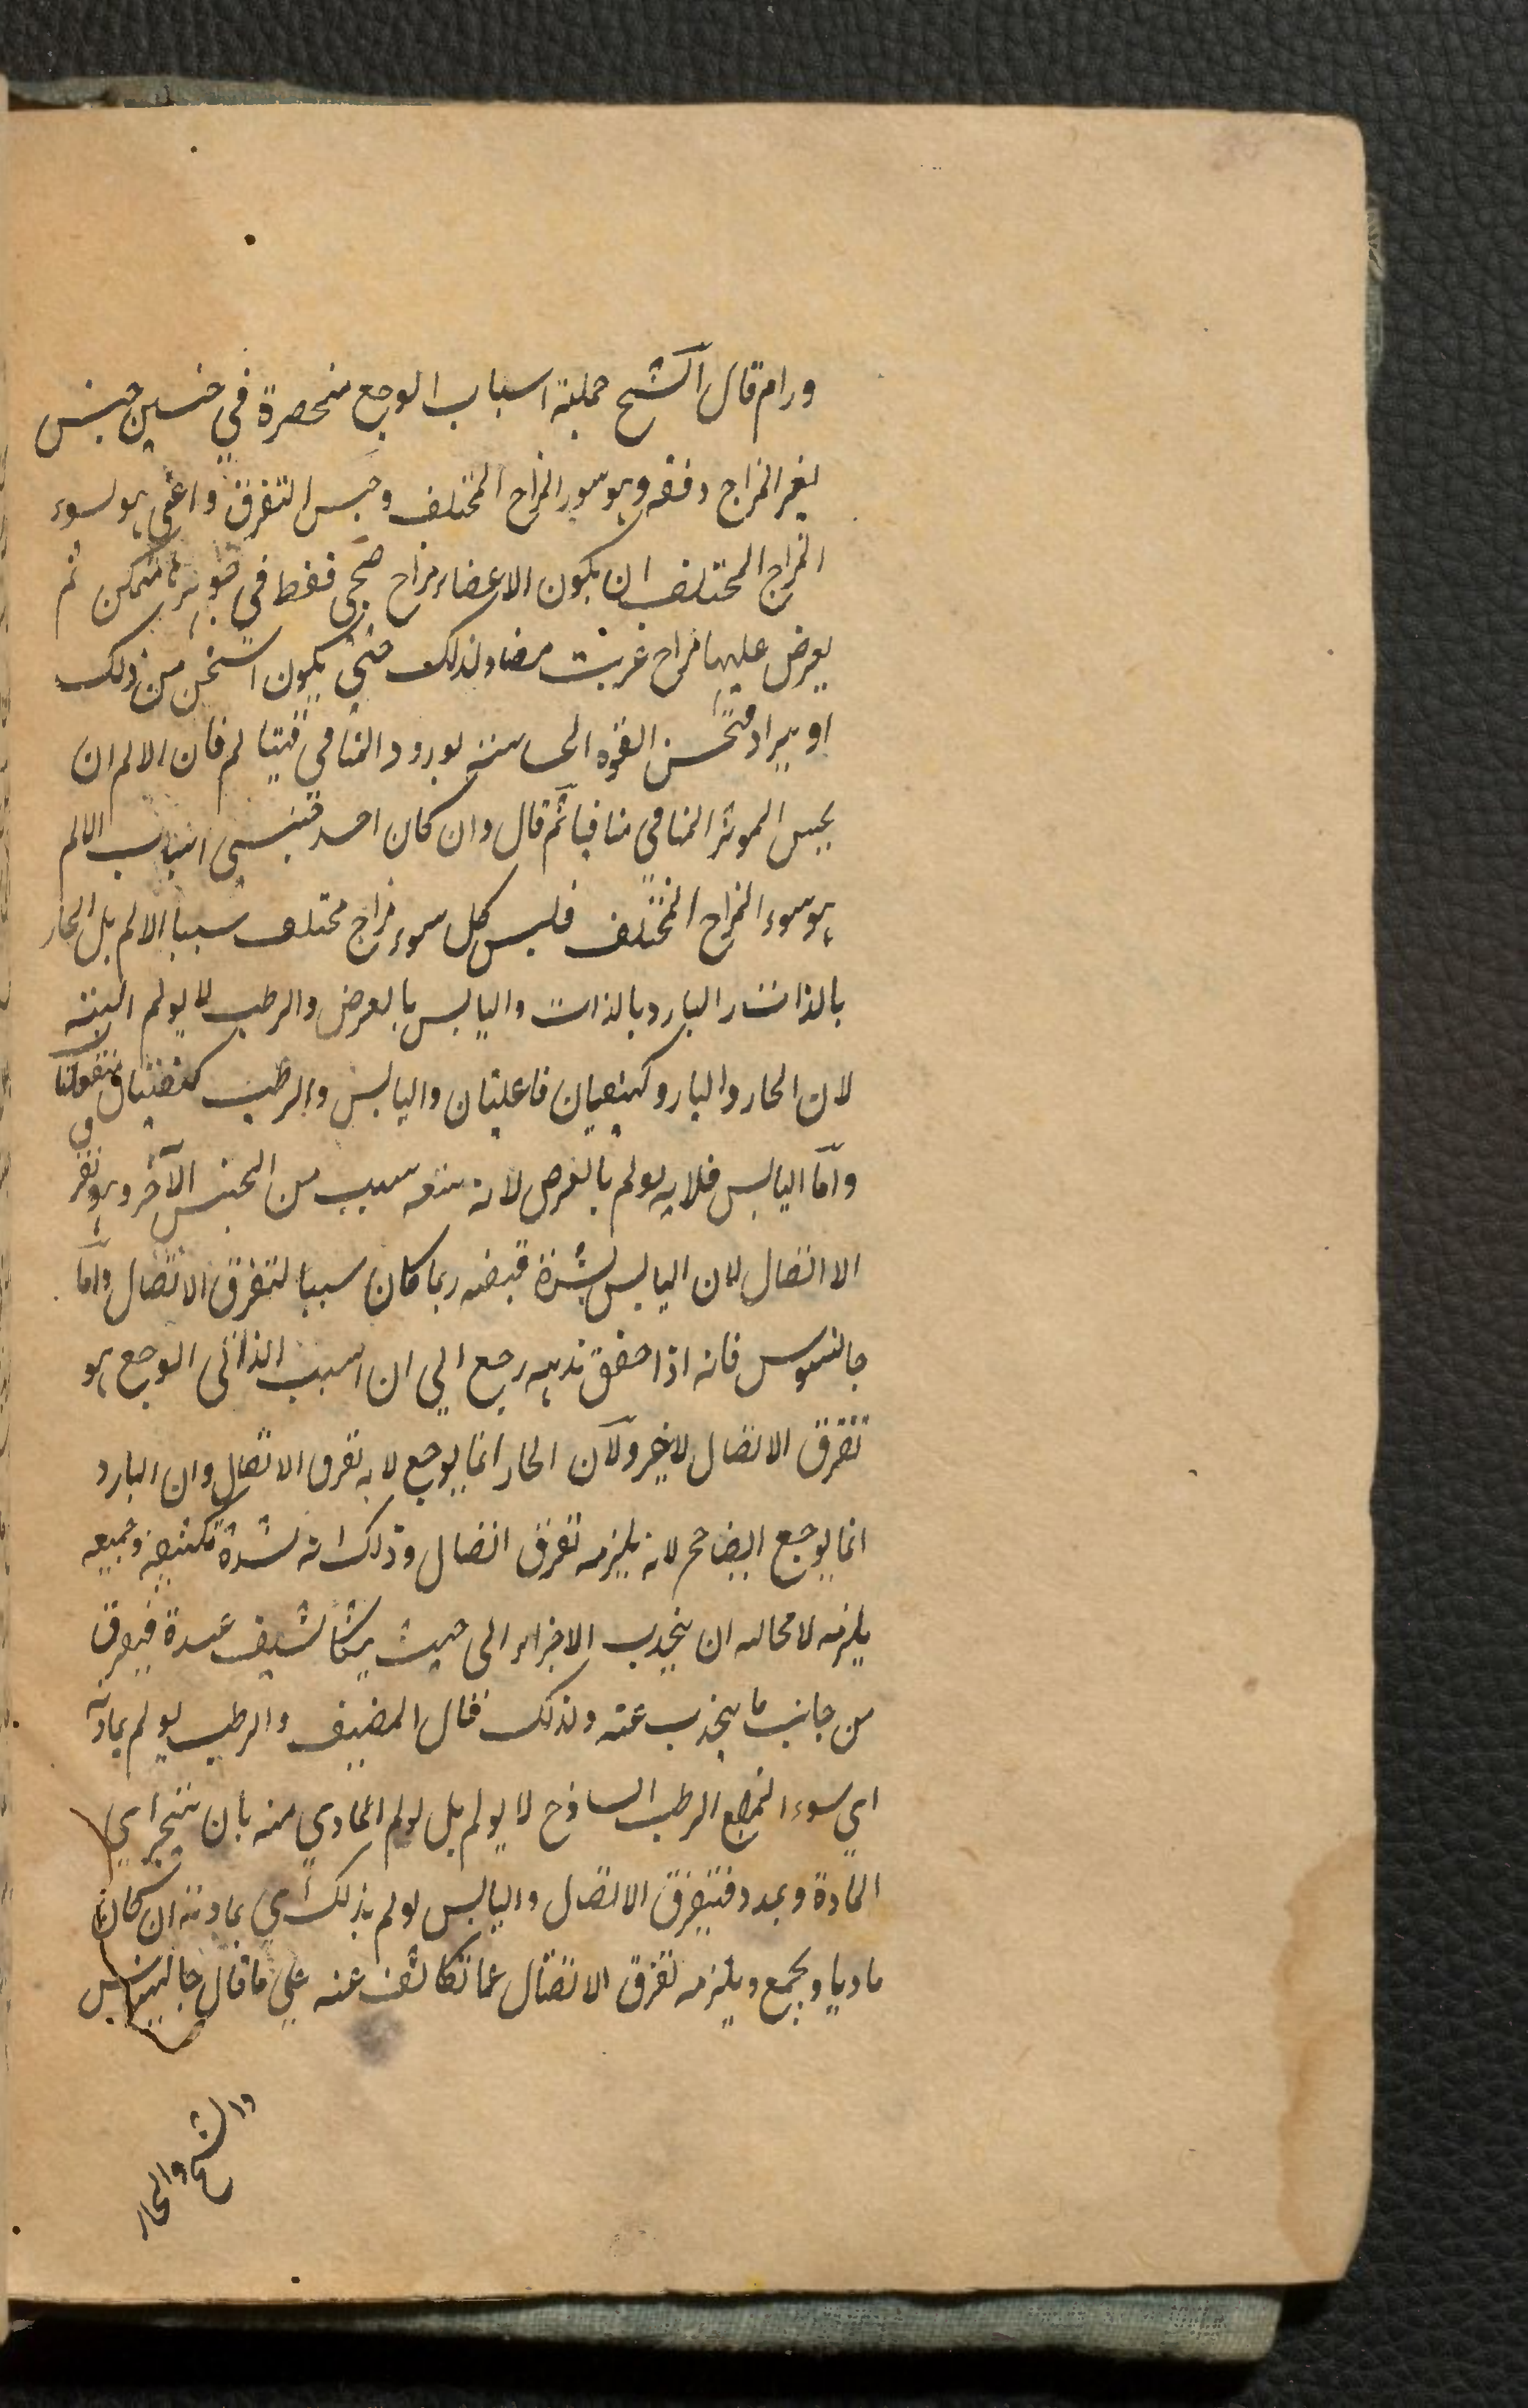 ورام قال الشيخ جملة اسباب الوجع منحصرة في جنسين جنس
يغير المزاج دفعه وهو سور المزاج المختلف وجنس التفرق واعني بو لسوء
المزاج المختلف ان يكون الاعضاء مزاح صحي فقط في جوهرها متمكن ثم
يعرض عليها مزاح غريب مضاد لذلك حتى يكون اسخن من ذلك
او يبراد فتحسن القوه الحاسة بورود المنافي فيتالم فان الالم ان
يحس الموثر المنافي منافيا ثم قال وان كان احد جنسي اسباب الالم
هو سوء المزاح المختلف فليس كل سوء مزاج مختلف سببا الالم بل الحار
بالذات والبارد بالذات واليابس بالعرض والرطب لا يولم البته
لان الحار والبارد كيفيتان فاعليتان واليابس والرطب كيفيتان منفعلتان
واما اليابس فلانه يولم بالعرض لانه يتبعه سبب من الجنس الآخر وهو تفرق
الا اتصال لان اليابس لشدة قبضه ربما كان سببا لتفرق الاتصال واما
جالنيوس فانه اذا حقق مذهبه رجع الي ان السبب الذاتي الوجع هو
تفرق الاتصال لاغير ولان الحار انما يوجع لانه تفرق الاتصال وان البارد
انما يوجع ايضا لانه يلزمه تفرق اتصال وذلك انه لشدة تكثيفه وجمعه
يلزمه لا محاله ان ينجذب الاجزاء الى حيث يتكاثف عنده فيفرق
من جانب ما ينجذب عنه ولذلك قال المصنف والرطب يولم بمادته
اي سوء المزاج الرطب الساذج لا يولم بل يولم المادي منه بان
المادة ويمدد فيتفرق الاتصال واليابس يولم بذلك اي بمادته ان كان
ماديا ويجمع ويلزمه تفرق الاتصال عما تكاثف عنه علي ما قال جالينوس
والشيخ والحار